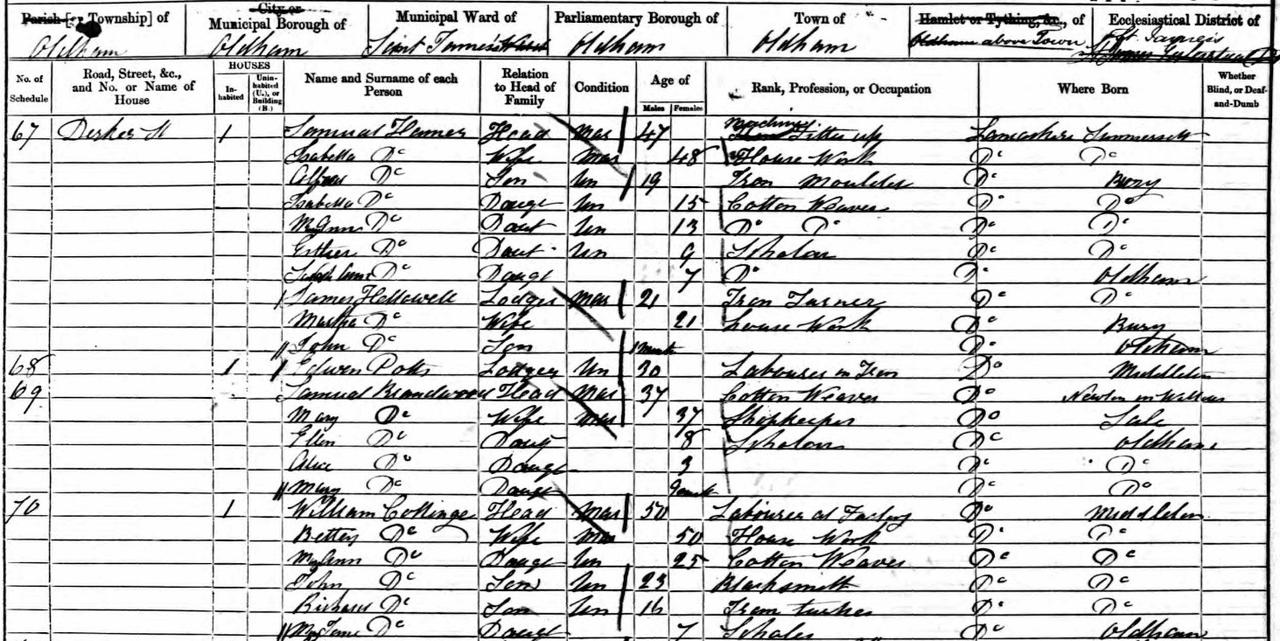 Parish [or Township] of City or Municipal Borough of Municipal Ward of Parliamentary Borough of Town of Hamlet or Tything, &c., of Ecclesiastical District of
Oldham Oldham Saint James's Oldham Oldham Oldham above Town St James's
No. of Schedule Road, Street, &c., and No. or Name of House HOUSES Inhabited Uninhabited (U.), or Building (B.) Name and Surname of each Person Relation to Head of Family Condition Age of Males Females Rank, Profession, or Occupation Where Born Whether Blind, or Deaf-and-Dumb
67 Derker St 1 Samuel Hamer Head Mar 47 Machine Fitter up Lancashire Summerseat
Isabella Do Wife Mar 48 House Work Do Do
Alfred Do Son Un 19 Iron Moulder Do Bury
Isabella Do Daugr 15 Un Cotton Weaver Do Do
My Ann Do Daur Un 13 Do Do Do Do
Esther Do Daur Un 9 Scholar Do Do
Sarah Ann Do Daugr 7 Do Do Oldham
James Hellowell Lodger Mar 21 Iron Turner Do Do
Martha Do Wife 21 House Work Do Bury
John Do Son 1 Month Do Oldham
68 1 Edwin Potts Lodger Un 30 Labourer in Iron Do Middleton
69 Samuel Brandwood Head Mar 37 Cotton Weaver Newton in Willows
Mary Do Wife Mar 37 Shopkeeper Do Sale
Ellen Do Daugr 8 Scholar Do Oldham
Alice Do Daugr 3 Do Do
Mary Do Daugr Do Do
70 1 William Collinge Head Mar 50 Labourer at Factory Do Middleton
Betty Do Wife Mar 50 House Work Do Do
My Ann Do Daugr Un 25 Cotton Weaver Do Do
John Do Son Un 23 Blacksmith Do Do
Richard Do Son Un 16 Iron Do Do
My Jane Do Daugr 7 Scholar Do Oldham